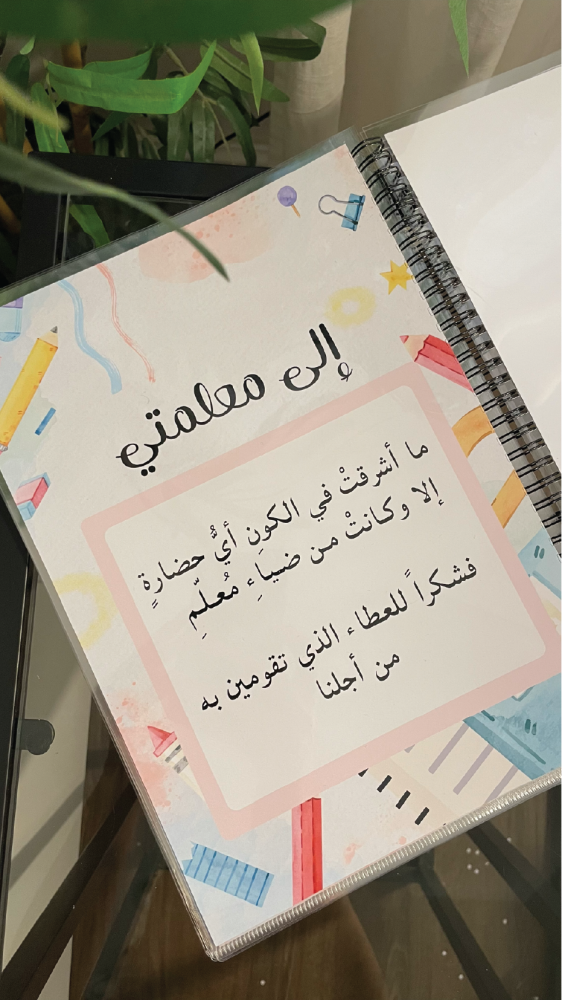 إلى معلمتي
ما أشرقتْ في الكونِ أيُّ حضارةٍ
إلا وكانتْ من ضياءِ مُعلّمِ
فشكراً للعطاء الذي تقومين به
من أجلنا